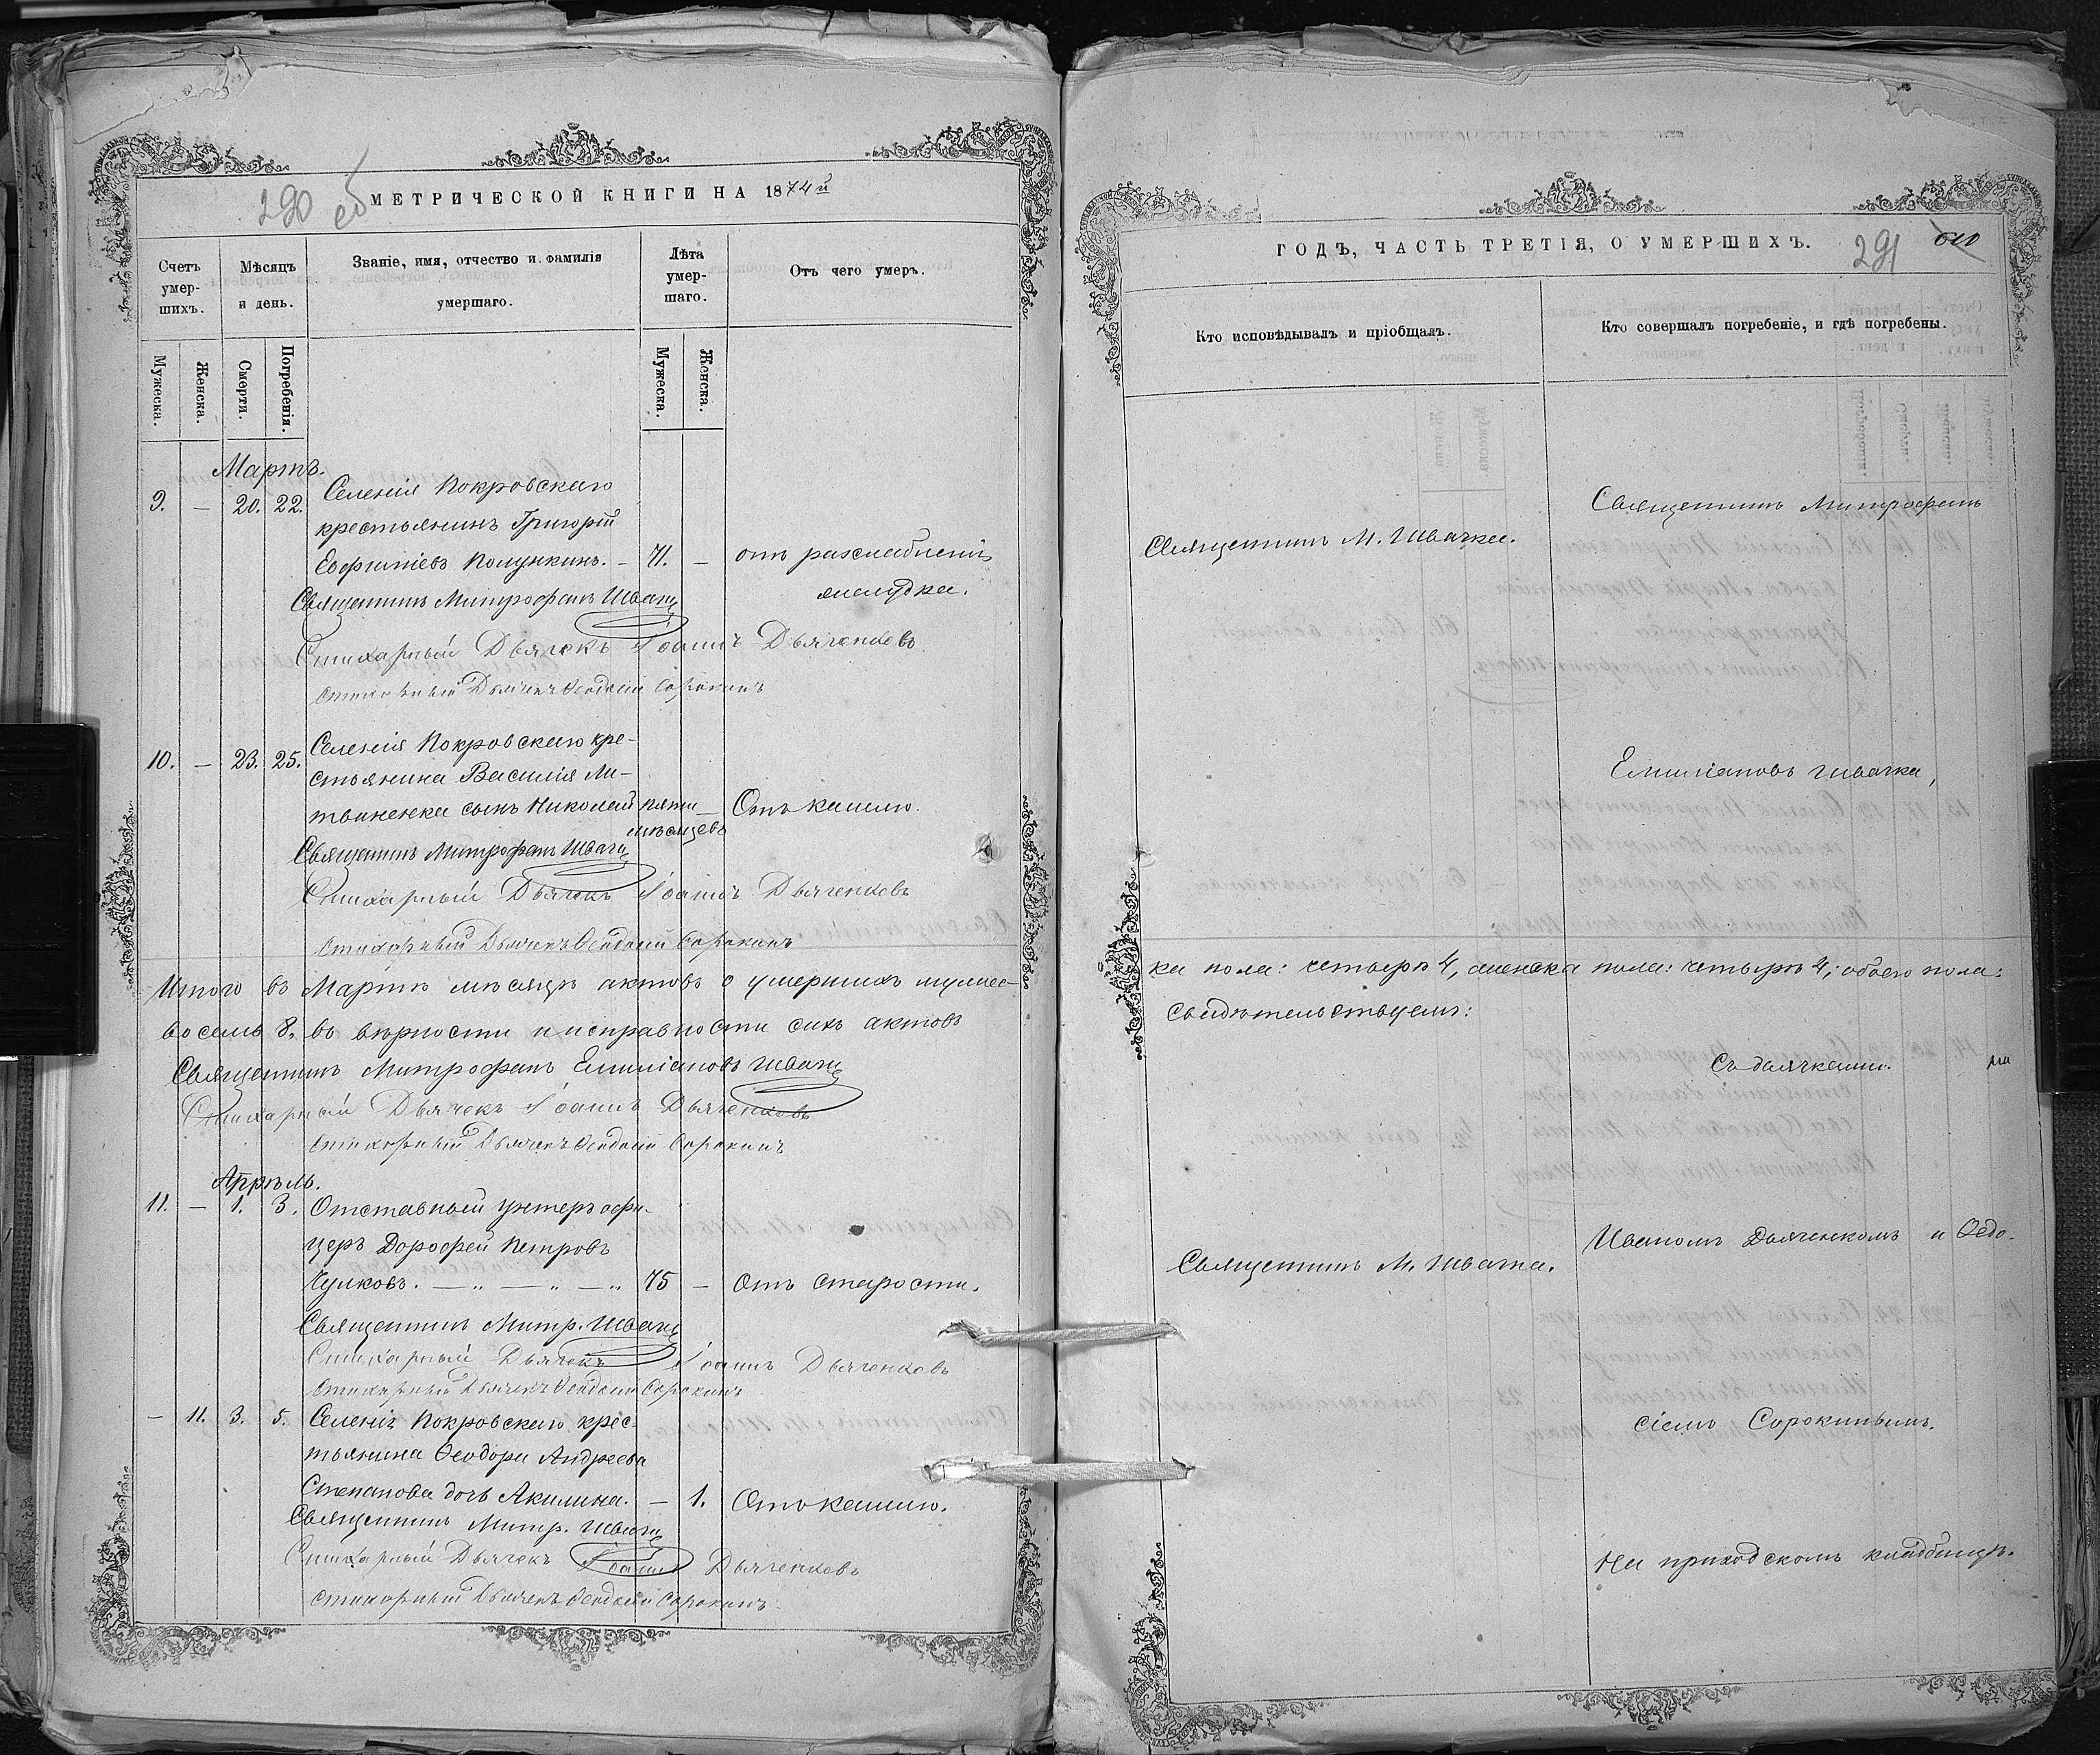 290 об
МЕТРИЧЕСКОЙ КНИГИ НА 1874й
Счетъ умер-шихъ.
Мѣсяцъ и день.
Званіе, имя, отчество и фамилія умершаго.
Лѣта умер-шаго.
Отъ чего умеръ.
Мужеска.
Женска.
Смерти.
Погребенія.
Мужеска.
Женска.
Мартъ.
9. — 20. 22. Селенія Покровскаго
крестьянинъ Григорій
Евфиміевъ Полункинъ. — 71. — отъ разслабленія
Священникъ Митрофанъ Швачка желудка.
Стихарный Дьячекъ Іоаннъ Дьяченковъ
стихарный Дьячекъ Ѳеодосій Сорокинъ
10. — 23. 25. Селенія Покровскаго кре-
стьянина Василія Ли-
твиненка сынъ Николай пяти — Отъ кашлю.
мѣсяцевъ
Священникъ Митрофанъ Швачка
Стихарный Дьячекъ Іоаннъ Дьяченковъ
стихарный Дьячекъ Ѳеодосій Сорокинъ
Итого въ Мартѣ мѣсяцѣ актовъ о умершихъ мужес-
восемь 8. въ вѣрности и исправности сихъ актовъ
Священникъ Митрофанъ Емиліановъ Швачка
Стихарный Дьячекъ Іоаннъ Дьяченковъ
стихарный Дьячекъ Ѳеодосій Сорокинъ
Апрѣль.
11. — 1. 3. Отставный унтеръ офи-
церъ Дорофей Петровъ
Чулковъ. — „ — „ — „ 75 — Отъ старости.
Священникъ Митр. Швачка
Стихарный Дьячекъ Іоаннъ Дьяченковъ
стихарный Дьячекъ Ѳеодосій Сорокинъ
— 11. 3. 5. Селенія Покровскаго крес-
тьянина Ѳеодора Андреева
Степанова дочь Акилина. — 1. Отъ кашлю.
Священникъ Митр. Швачка
Стихарный Дьячекъ Іоаннъ Дьяченковъ
стихарный Дьячекъ Ѳеодосій Сорокинъ
ГОДЪ, ЧАСТЬ ТРЕТІЯ, О УМЕРШИХЪ.
291
Кто исповѣдывалъ и пріобщалъ.
Кто совершалъ погребеніе, и гдѣ погребены.
Священникъ Митрофанъ
Священникъ М. Швачка.
Емиліановъ Швачка,
ка пола: четыре 4, женска пола: четыре 4; обоего пола:
свидѣтельствуемъ:
Съ дьячками
Иваномъ Дьяченкомъ и Ѳедо-
Священникъ М. Швачка.
сіемъ Сорокинымъ.
На приходскомъ кладбищѣ.